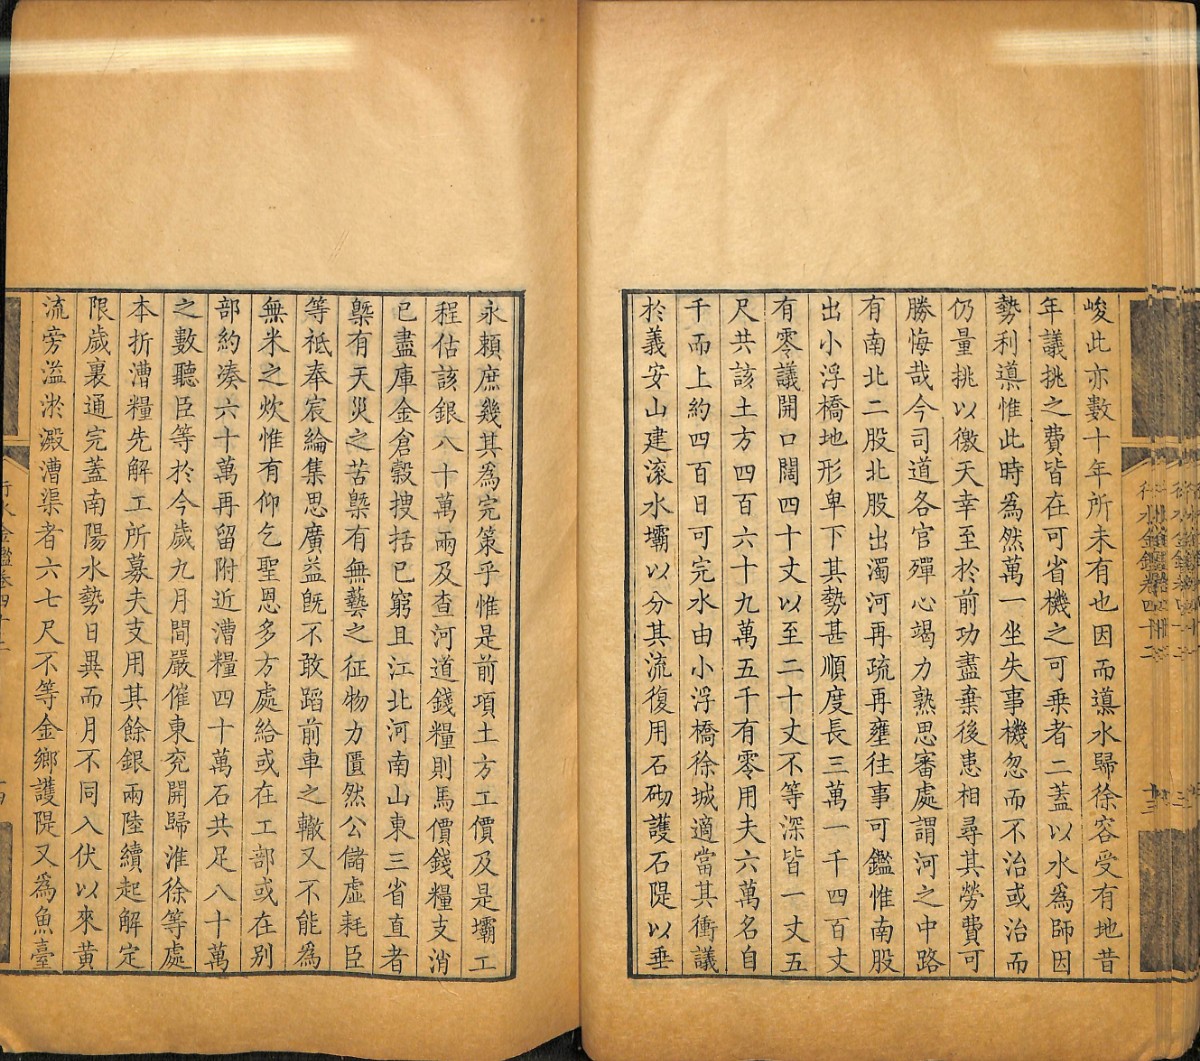 行水金鑑卷四十二
十三
峻此亦數十年所未有也因而導水歸徐容受有地昔
年議挑之費皆在可省機之可乗者二蓋以水爲師因
勢利導惟此時爲然萬一坐失事機忽而不治或治而
仍量挑以徼天幸至於前功盡棄後患相尋其勞費可
勝悔哉今司道各官殫心竭力熟思審處謂河之中路
有南北二股北股出濁河再疏再壅往事可鑑惟南股
出小浮橋地形卑下其勢甚順度長三萬一千四百丈
有零議開口闊四十丈以至二十丈不等深皆一丈五
尺共該土方四百六十九萬五千有零用夫六萬名自
千而上約四百日可完水由小浮橋徐城適當其衝議
於義安山建滚水壩以分其流復用石砌護石隄以垂
永頼庶幾其爲完策乎惟是前項土方工價及是壩工
程估該銀八十萬兩及查河道錢糧則馬價錢糧支消
已盡庫金倉榖搜括已窮且江北河南山東三省直者
槩有天災之苦槩有無藝之征物力匱然公儲虛耗臣
等祗奉宸綸集思廣益旣不敢蹈前車之轍又不能爲
無米之炊惟有仰乞聖恩多方處給或在工部或在别
部約凑六十萬再留附近漕糧四十萬石共足八十萬
之數聽臣等於今歲九月間嚴催東兖開歸淮徐等處
本折漕糧先解工所募夫支用其餘銀兩陸續起解定
限歲裏通完蓋南陽水勢日異而月不同入伏以來黄
流旁溢淤澱漕渠者六七尺不等金鄉護隄又爲魚臺